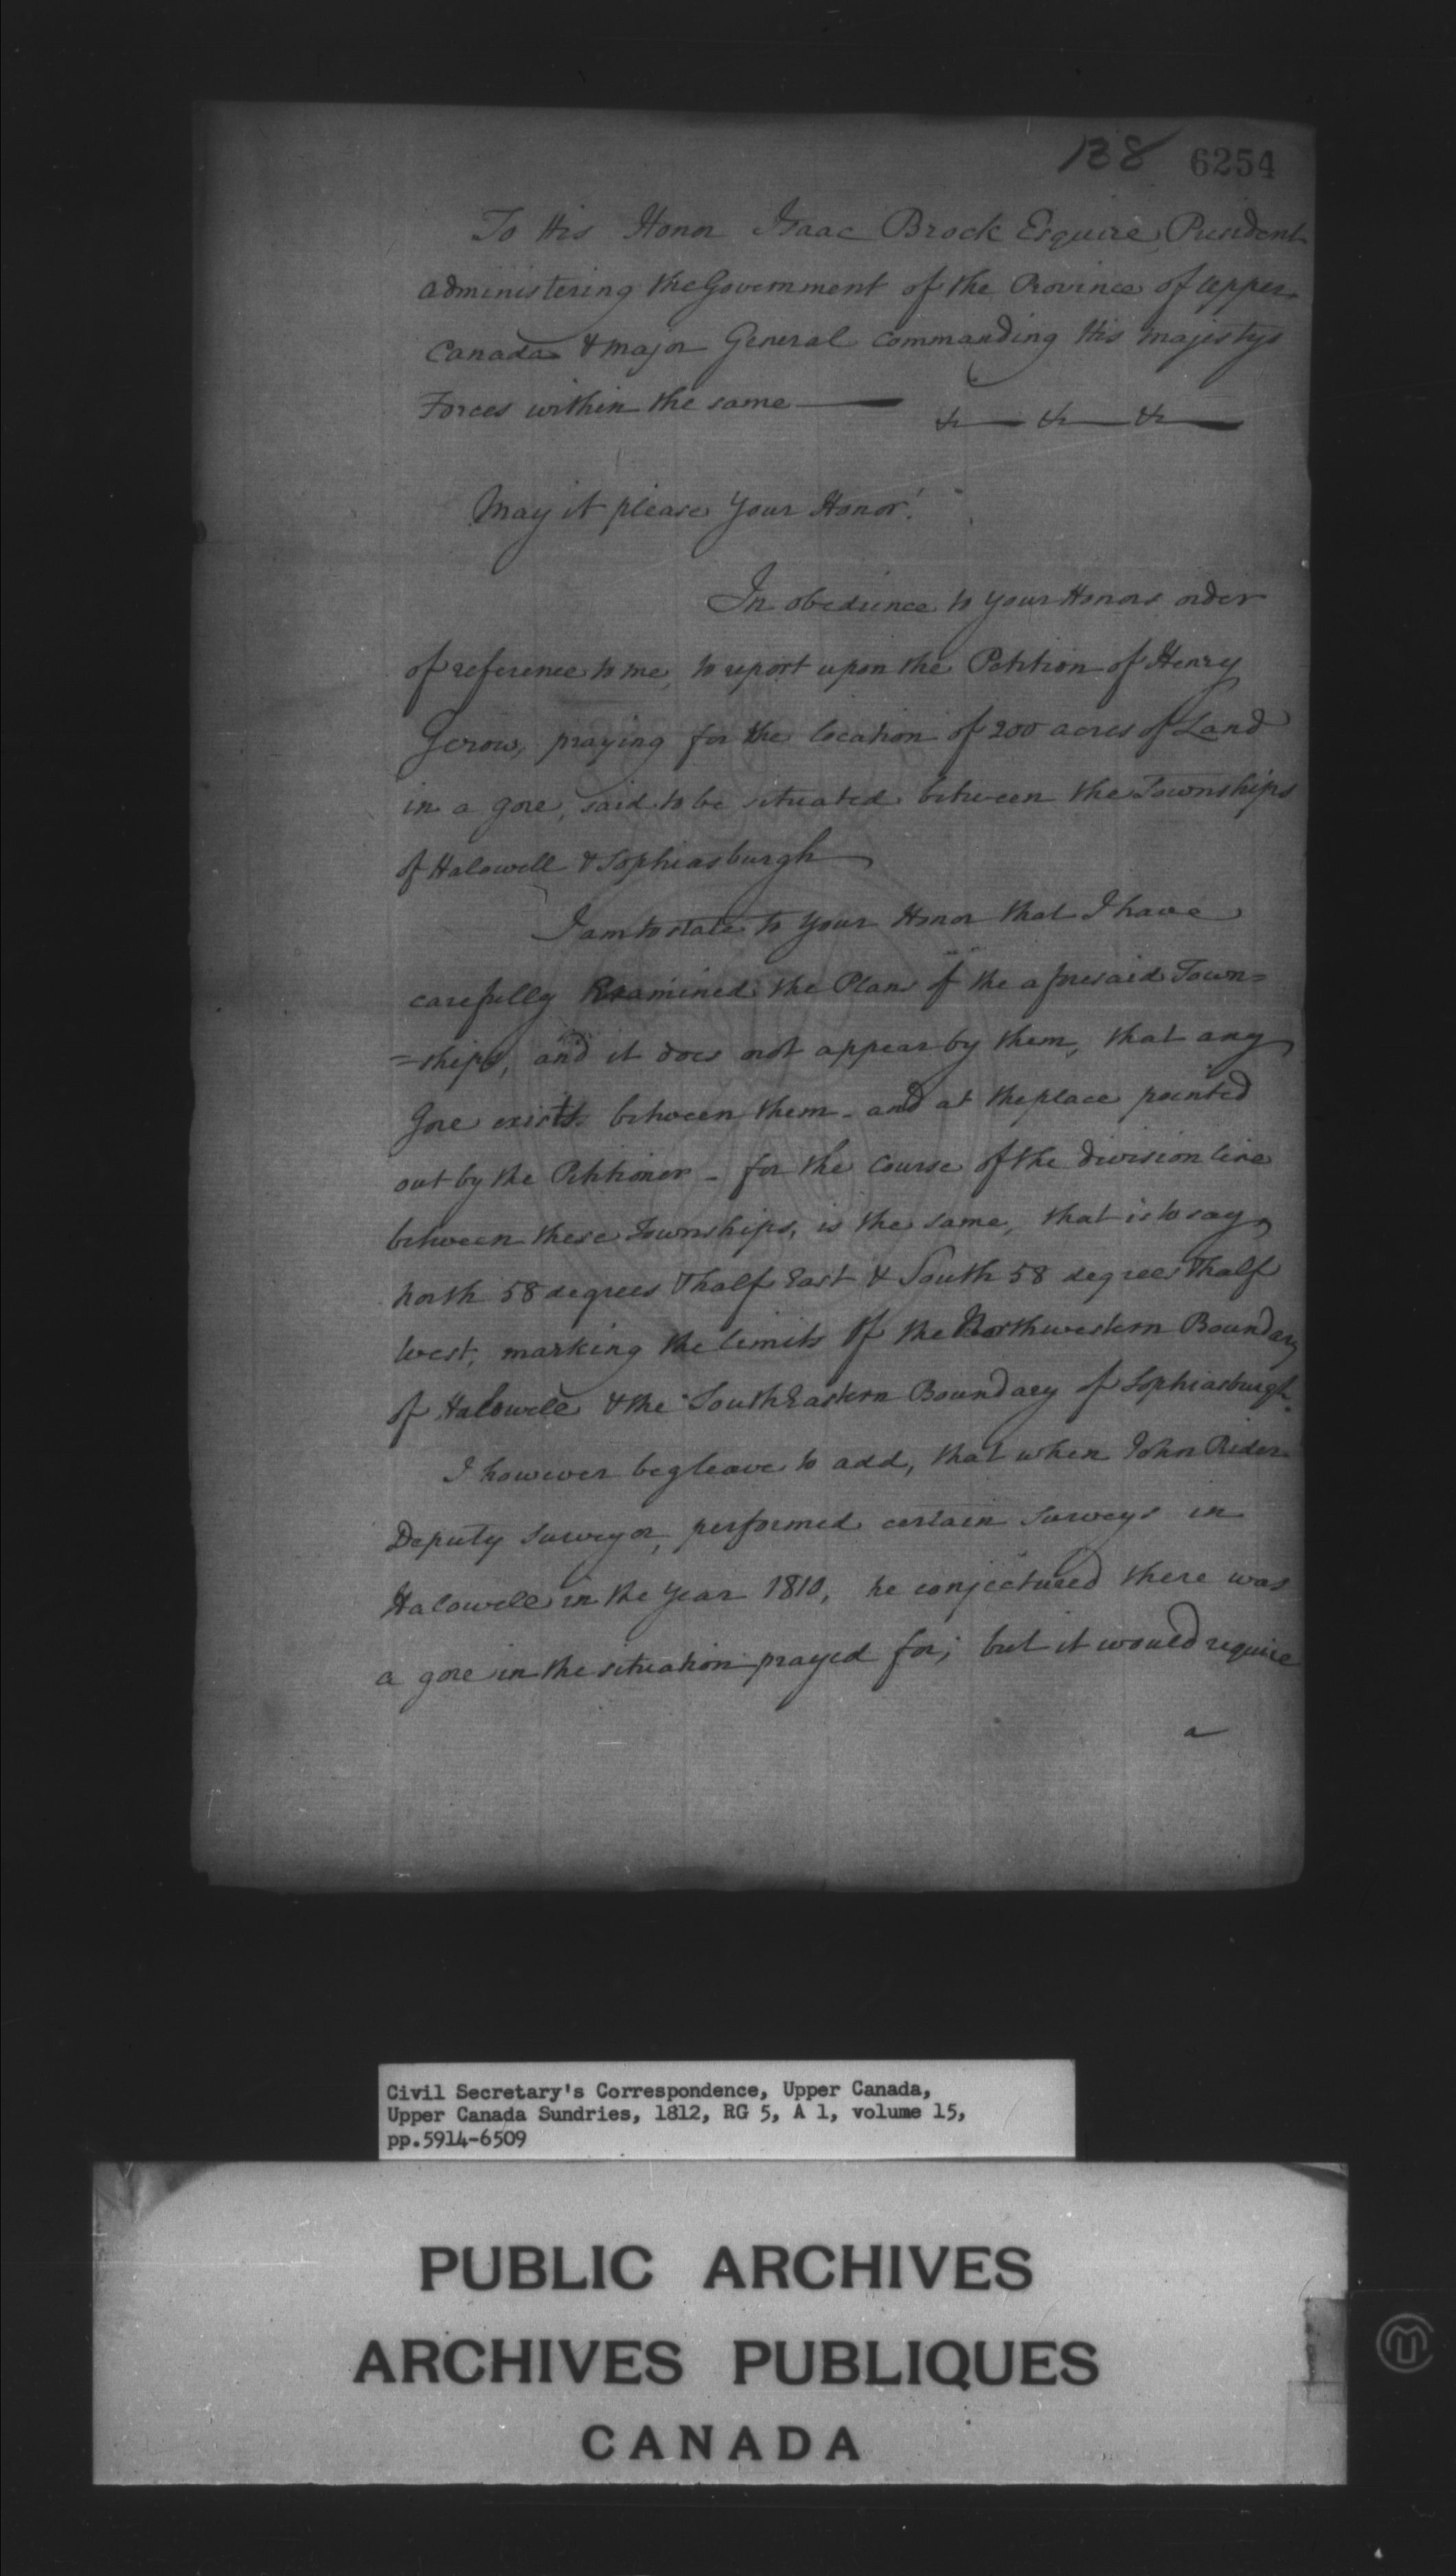 138 6254
To His Honor Isaac Brock Esquire, President
administering the Government of the Province of Upper
Canada & Major General commanding His Majestys
Forces within the same — &c — &c — &c —
May it please Your Honor!
In obedience to your Honors order
of reference to me, to report upon the Petition of Henry
Gerow, praying for the location of 200 acres of Land
in a gore, said to be situated between the Townships
of Halowell & Sophiasburgh
I am to state to Your Honor that I have
carefully Examined the Plans of the aforesaid Town=
=ships, and it does not appear by them, that any
Gore exists between them - and at the place pointed
out by the Petitioner - for the Course of the division line
between these Townships, is the same, that is to say,
North 58 degrees & half East & South 58 degrees & half
West, marking the limits of the Northwestern Boundary
of Halowell & the South Eastern Boundary of Sophiasburgh.
I however beg leave to add, that when John Rider
Deputy Surveyor, performed certain Surveys in
Halowell in the Year 1810, he conjectured there was
a gore in the situation prayed for; but it would require
a
Civil Secretary's Correspondence, Upper Canada,
Upper Canada Sundries, 1812, RG 5, A 1, volume 15,
pp.5914-6509
PUBLIC ARCHIVES
ARCHIVES PUBLIQUES
CANADA